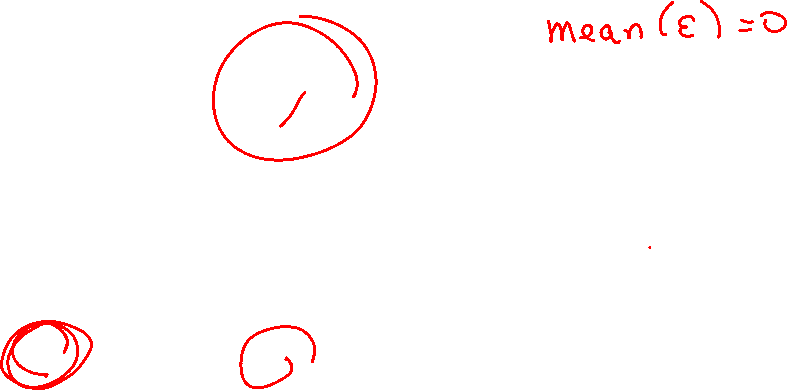 mean (ε) = 0